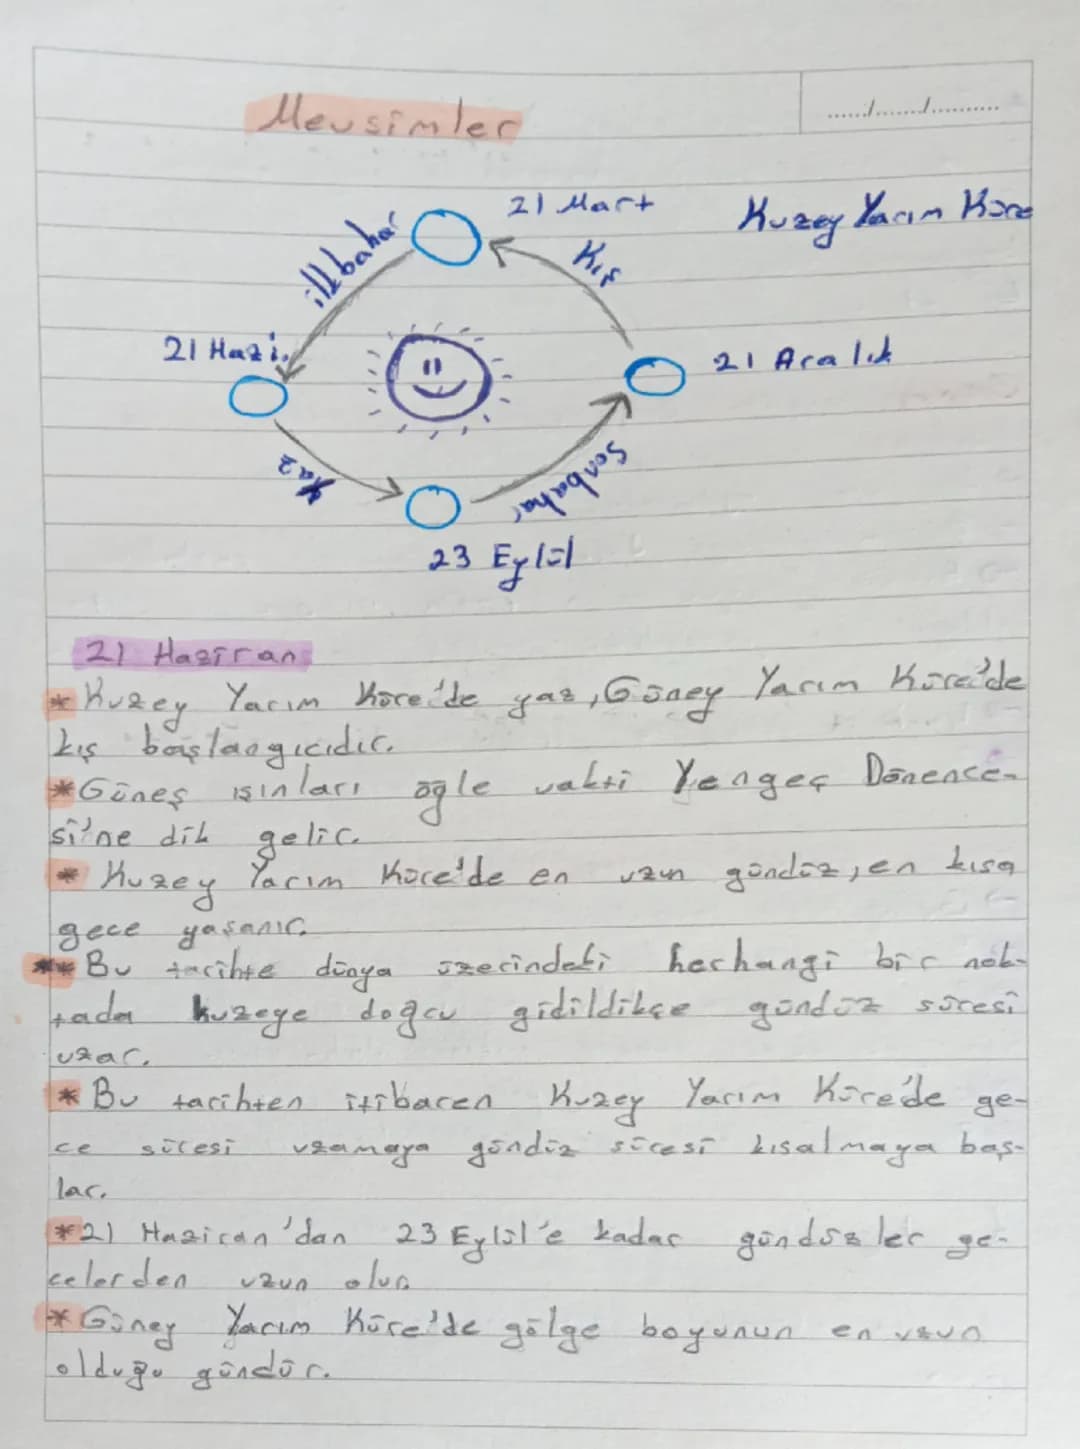 Mevsimler
....../......./..........
21 Mart
Kuzey Yarım Küre
ilkbahar
Kış
21 Hazi.
21 Aralık
Yaz
Sonbahar
23 Eylül
21 Haziran:
* Kuzey Yarım Küre'de yaz, Güney Yarım Küre'de
kış başlangıcıdır.
* Güneş ışınları öğle vakti Yengeç Dönence-
si'ne dik gelir.
* Kuzey Yarım Küre'de en uzun gündüz, en kısa
gece yaşanır.
** Bu tarihte dünya üzerindeki herhangi bir nok-
tada kuzeye doğru gidildikçe gündüz süresi
uzar.
* Bu tarihten itibaren Kuzey Yarım Küre'de ge-
ce süresi uzamaya gündüz süresi kısalmaya baş-
lar.
* 21 Haziran'dan 23 Eylül'e kadar gündüzler ge-
celerden uzun olur.
* Güney Yarım Küre'de gölge boyunun en uzun
olduğu gündür.